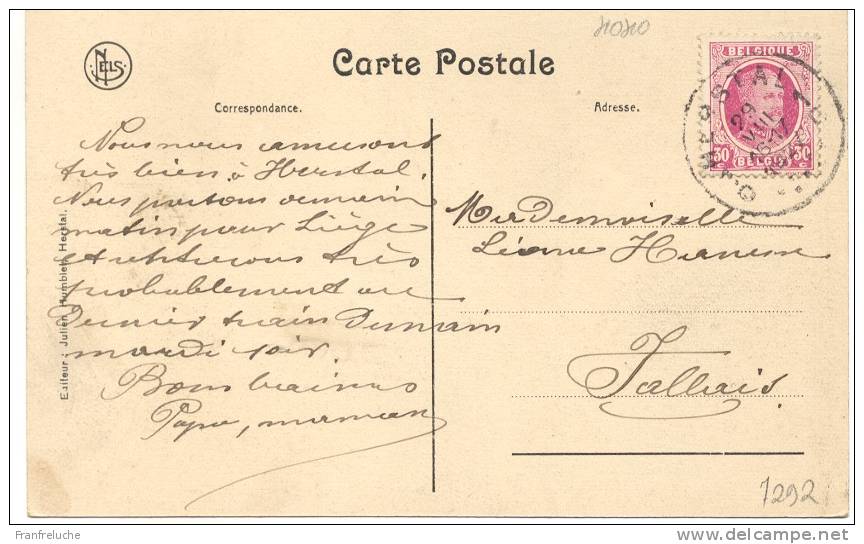 40240
NELS
Carte Postale
BELGIQUE
30c 30c
BELGIË
HERSTAL 1
29
VIII
16-17
Correspondance.
Adresse.
Nous nous amusons
très bien à Herstal.
Nous partons demain
matin pour Liège
et rentrerons très
probablement au
dernier train Demain
mardi soir.
Bons baisers
Papa, maman
Mademoiselle
Léonie
Jallais
Editeur : Julien Humblet, Herstal.
1292
Franfreluche
www.delcampe.net